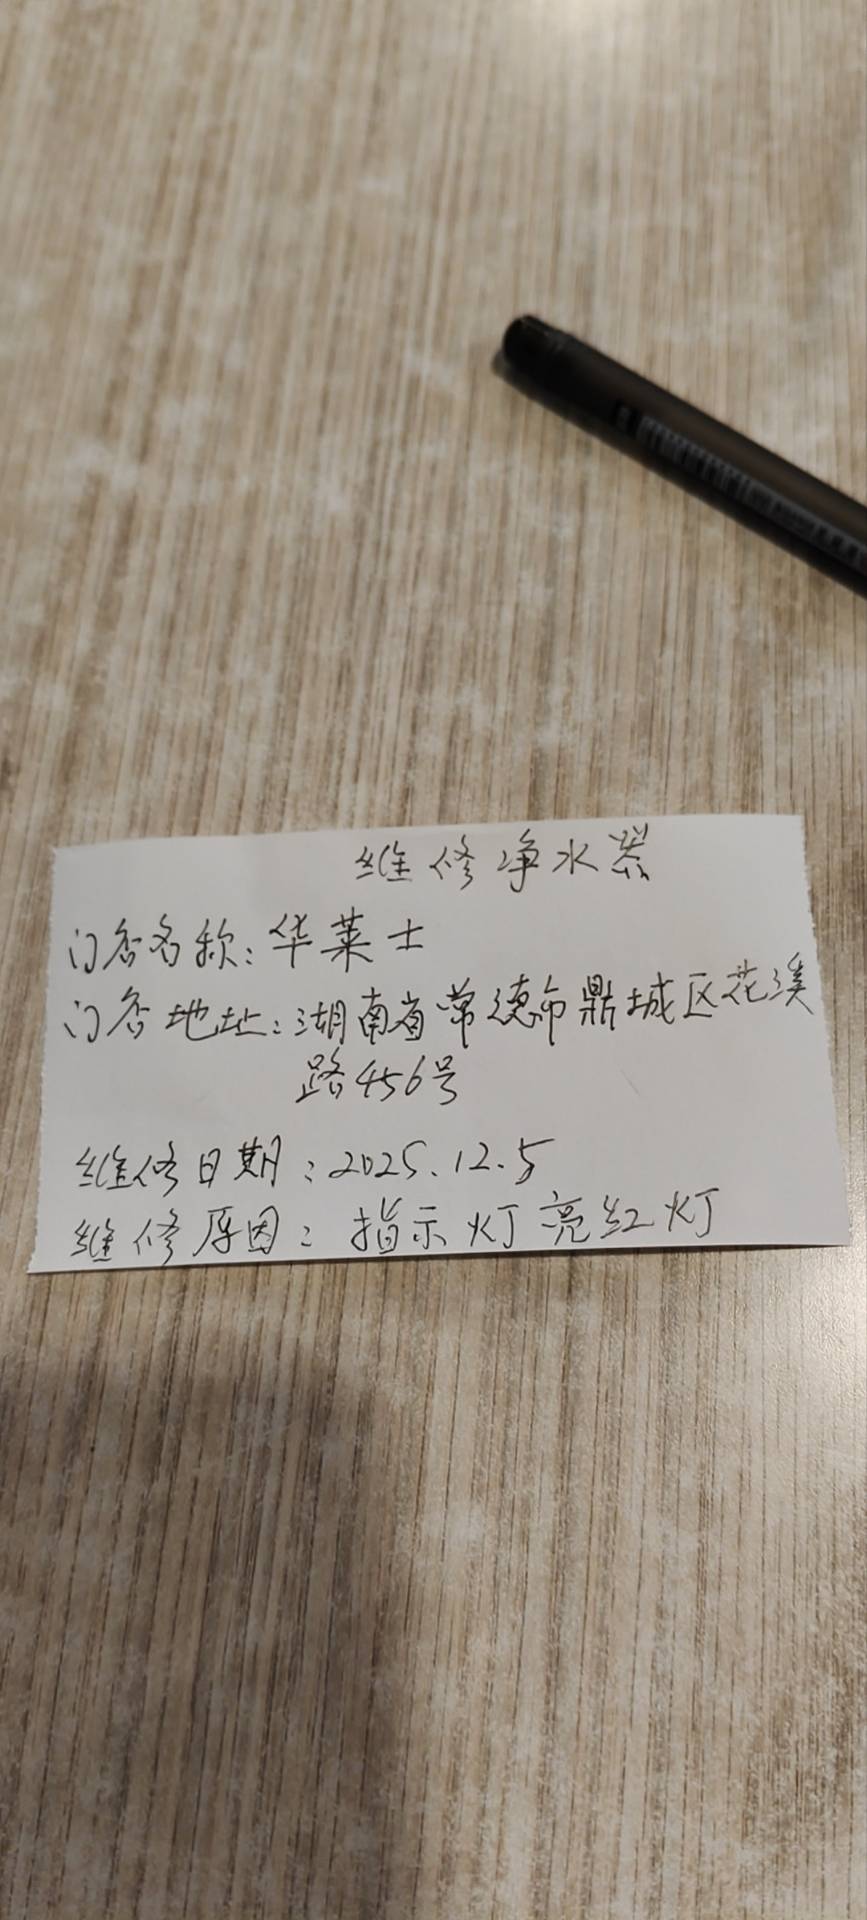 维修净水器
门店名称：华莱士
门店地址：湖南省常德市鼎城区花溪
路456号
维修日期：2025.12.5
维修原因：指示灯亮红灯